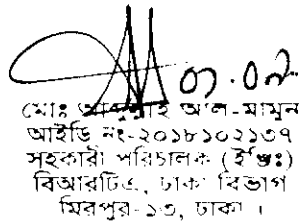 ০৭.০৮
মোঃ আব্দুল্লাহ আল-মামুন
আইডি নং-২০১৮১০২১৩৭
সহকারী পরিচালক (ইঞ্জিঃ)
বিআরটিএ, ঢাকা বিভাগ
মিরপুর-১৩, ঢাকা।